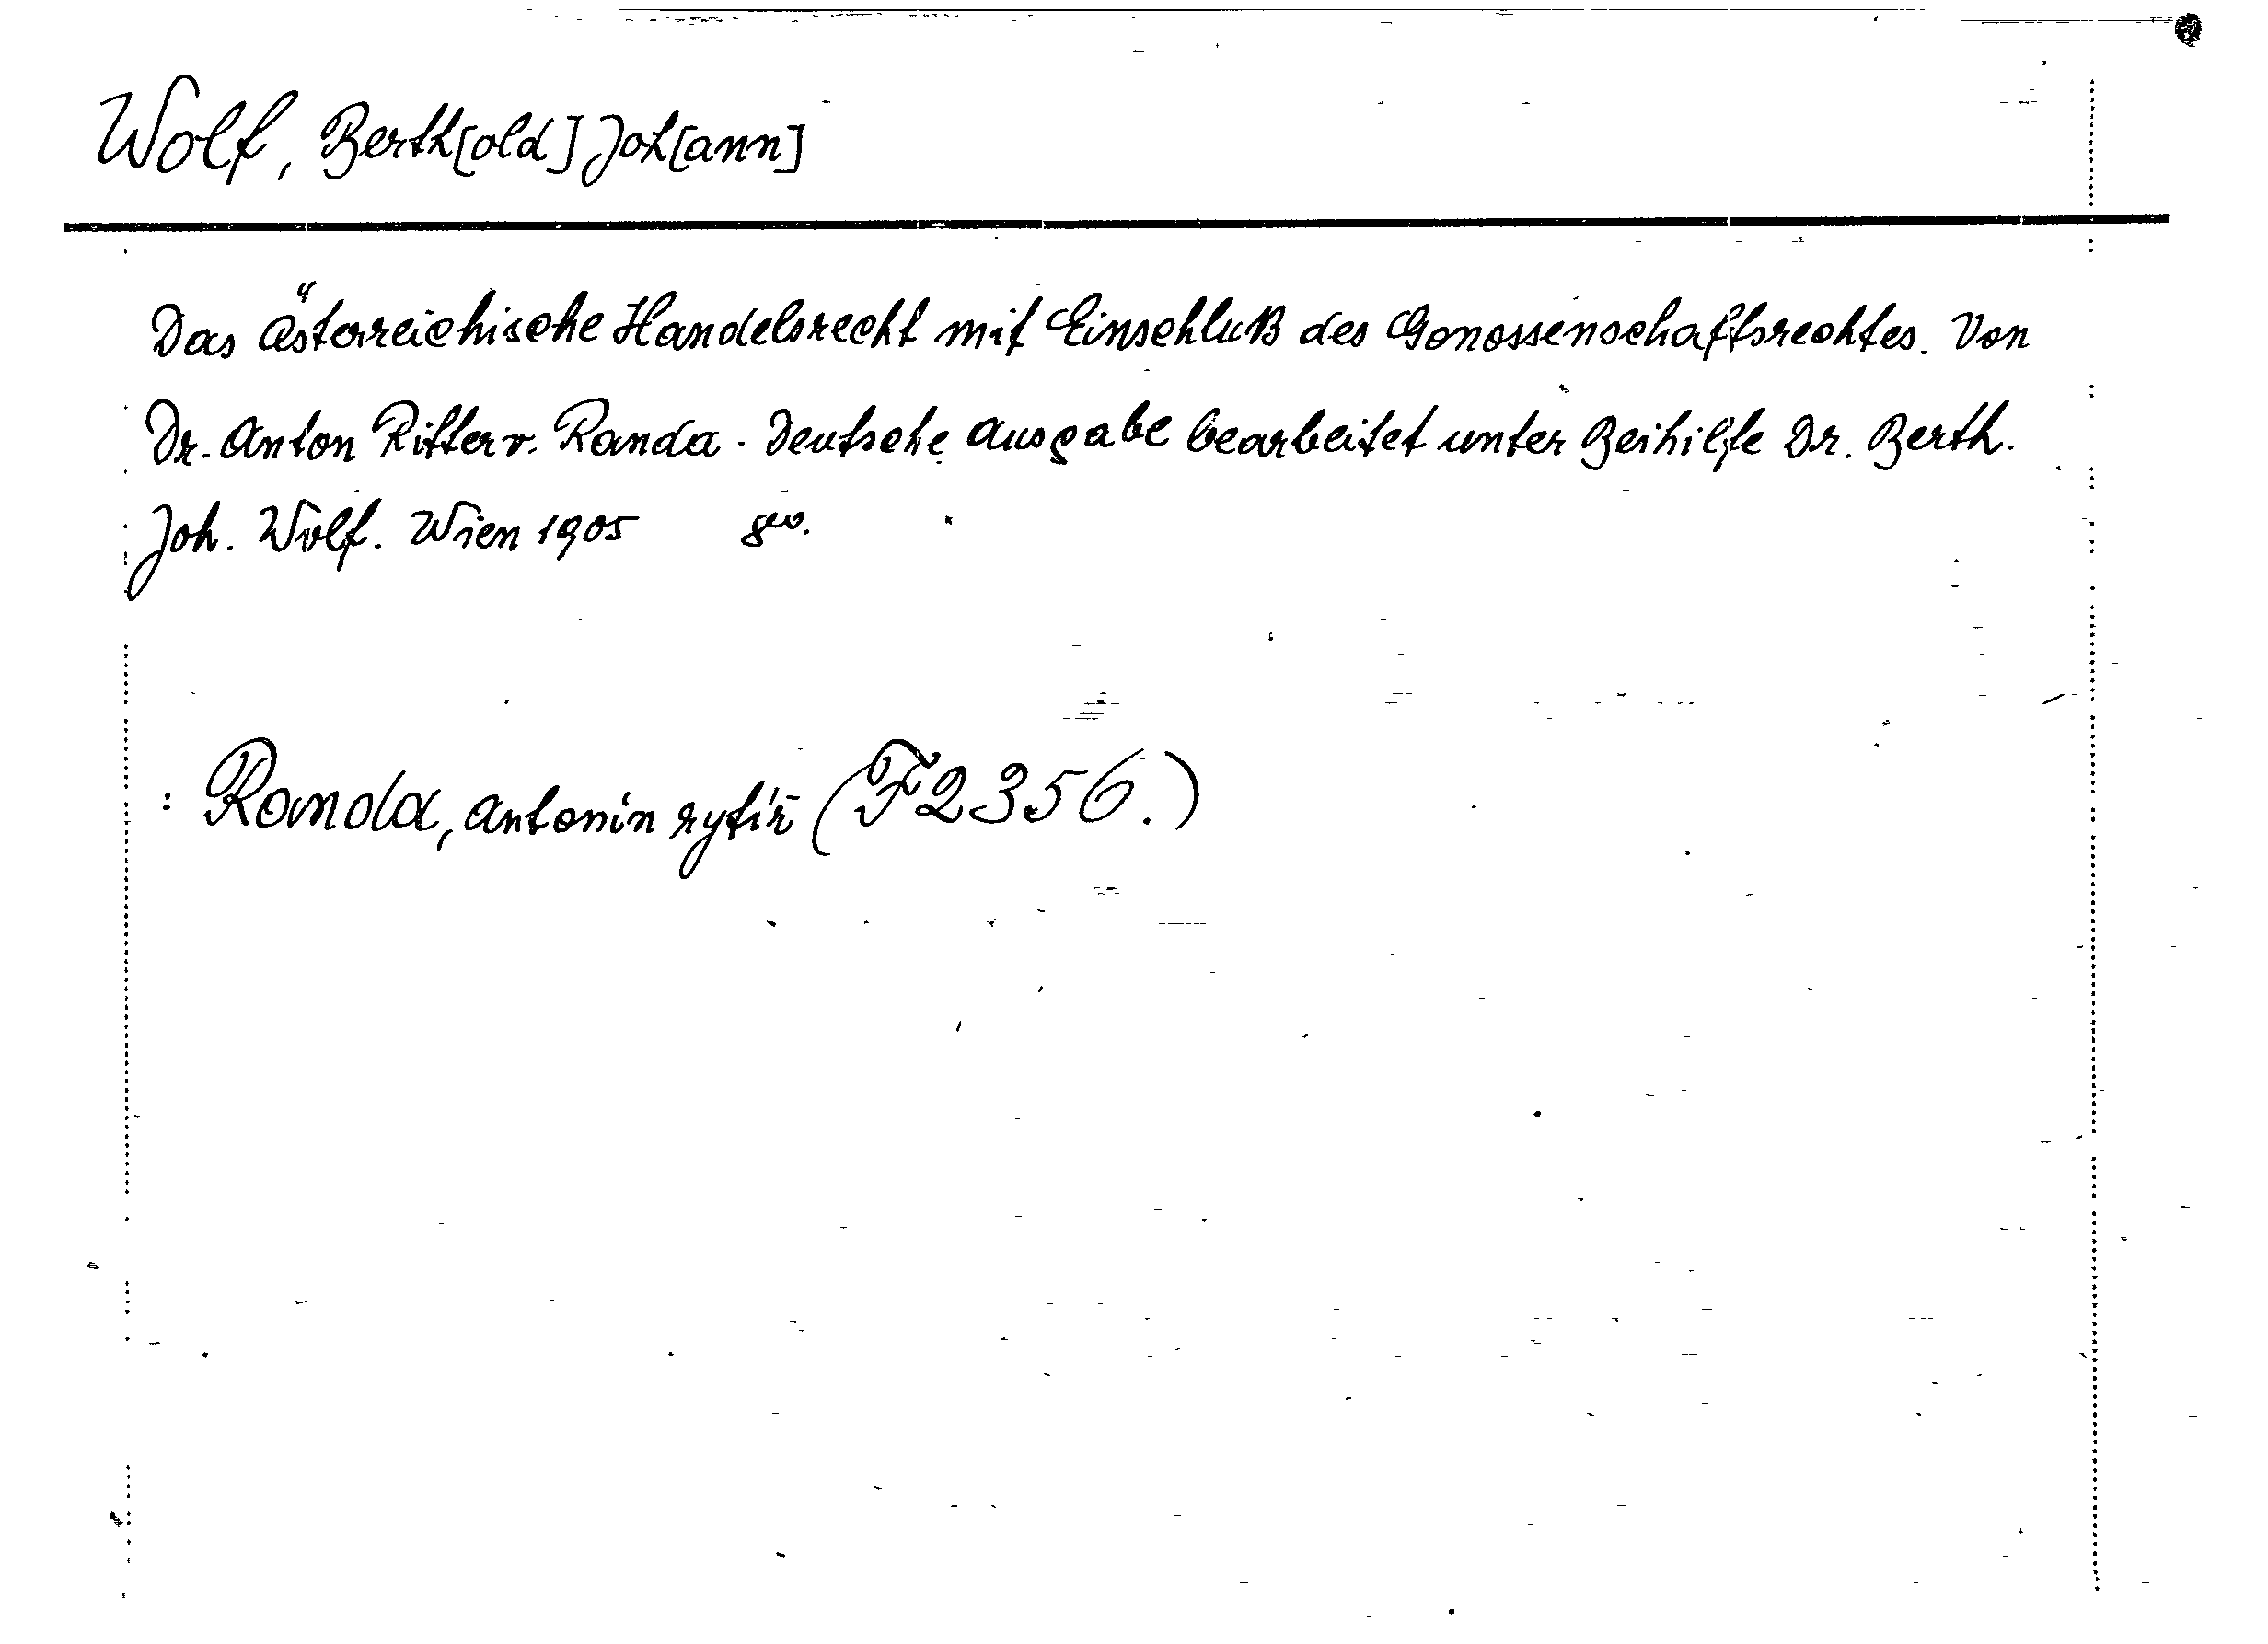 Wolf, Berth[old] Joh[ann]
Das österreichische Handelsrecht mit Einschluß des Genossenschaftsrechtes. Von
Dr. Anton Ritter v. Randa. Deutsche Ausgabe bearbeitet unter Beihilfe Dr. Berth.
Joh. Wolf. Wien 1905 8vo.
: Randa, Antonín rytíř (F2356.)